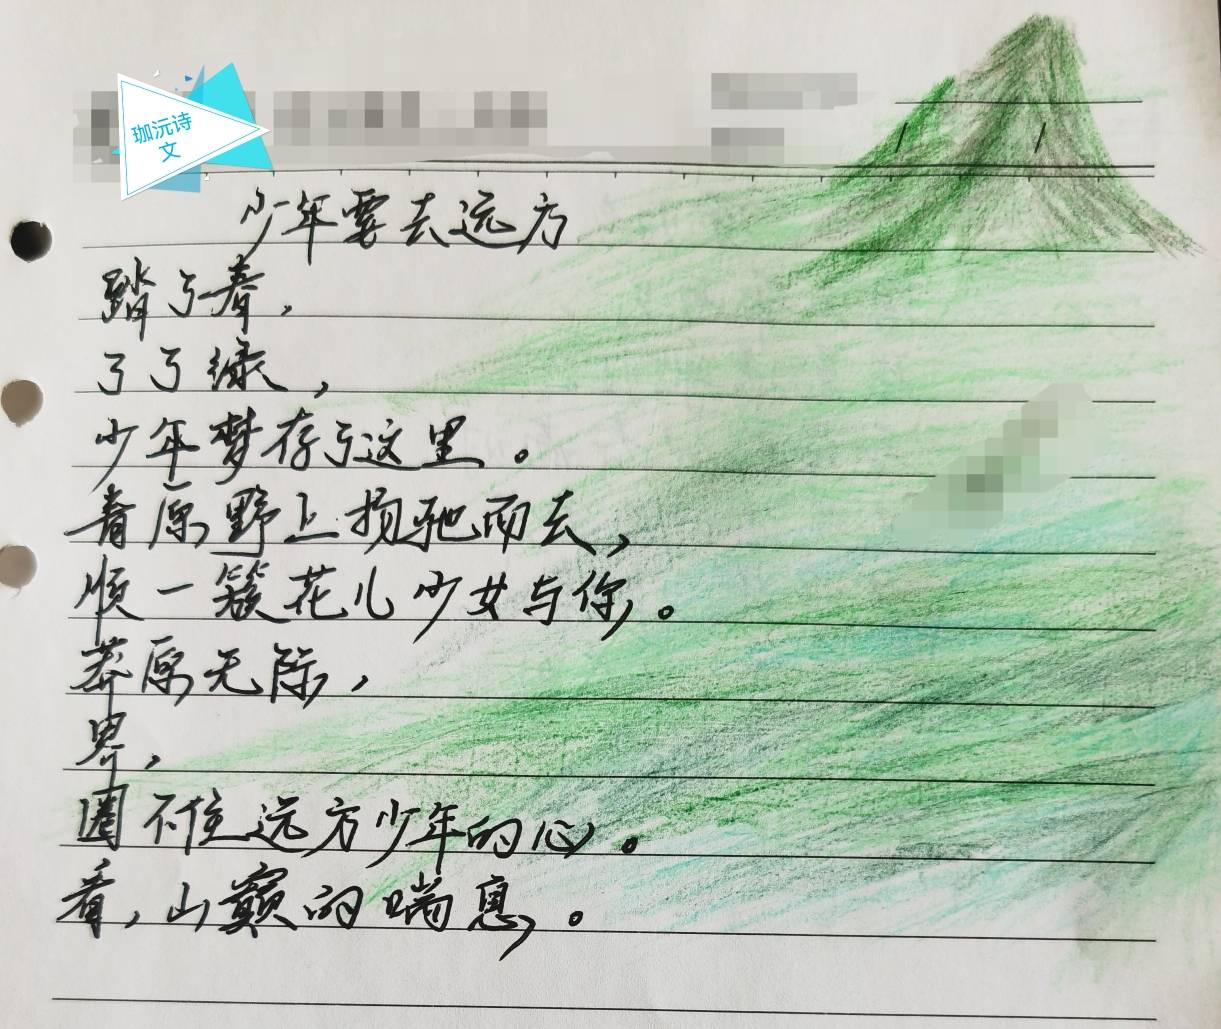 珈沅诗
文
少年要去远方
踏了春,
了了绿,
少年梦存了这里。
青原野上损驰而去,
顺一簇花儿少女与你。
莽原无际,
界,
圈不住远方少年的心。
看,山巅的喘息。